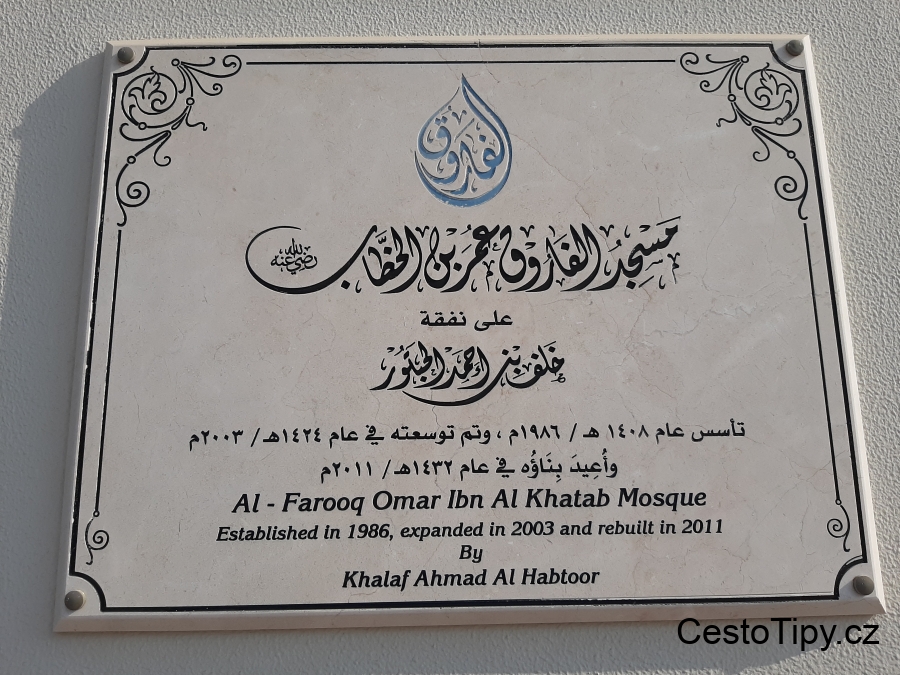 الفاروق
مَسْجِدُ الفَارُوقِ عُمَرَ بْنِ الخَطَّابِ رضي الله عنه
على نفقة
خَلَف بِن أحمَد الحَبْتُور
تأسس عام ١٤٠٨ هـ / ١٩٨٦م ، وتم توسعته في عام ١٤٢٤هـ/ ٢٠٠٣م
وأُعِيدَ بِنَاؤُه في عام ١٤٣٢هـ/ ٢٠١١م
Al - Farooq Omar Ibn Al Khatab Mosque
Established in 1986, expanded in 2003 and rebuilt in 2011
By
Khalaf Ahmad Al Habtoor
CestoTipy.cz